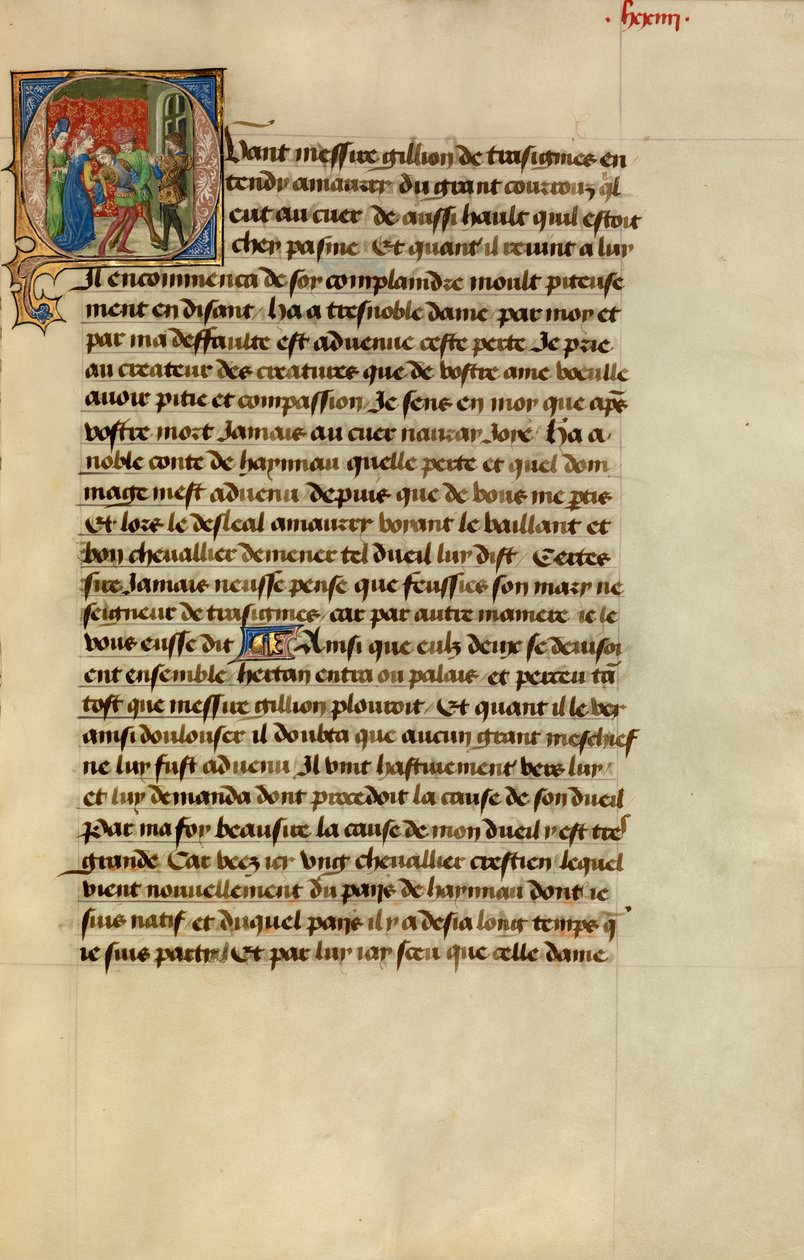 · lxxiiii ·
Quant messire gillion de trasignies en
tendy amaury du grant courrouz q̃l
eut au cuer de aussi hault quil estoit
chey pasme Et quant il revint a luy
Il encommenca de soy complaindre moult piteuse
ment en disant / ha a tresnoble dame par moy et
par ma deffaulte est advenue ceste perte Je prie
au createur des creatures que de vostre ame voeulle
avoir pitie et compassion / Je sens en moy que ap̃s
vostre mort Jamais au cuer nauray Joye / ha a
noble conte de haynnau quelle perte et quel dom
mage mest advenu depuis que de vous me ꝑtis
Et lors le desleal amaury voyant le vaillant et
bon chevallier demener tel dueil luy dist / Certes
sire Jamais neusse pense que feussies son mary ne
seigneur de trasignies / car par autre maniere ie le
vous eusse dit Ainsi que eulz deux se devisoi
ent ensemble / hertan entra ou palais et perceu tã
tost que messire gillion plouroit / Et quant il le vey
ainsi doulouser il doubta que aucun grant meschief
ne luy fust advenu / Il vint hastivement vers luy /
et luy demanda dont procedoit la cause de son dueil
Par ma foy beausire la cause de mon dueil y est tres
grande Car veez icy ung chevallier crestien lequel
vient nouvellement du pays de haynnau dont ie
suis natif / et duquel pays il y a desia long temps q̃
ie suis party / Et par luy iay sceu que celle dame